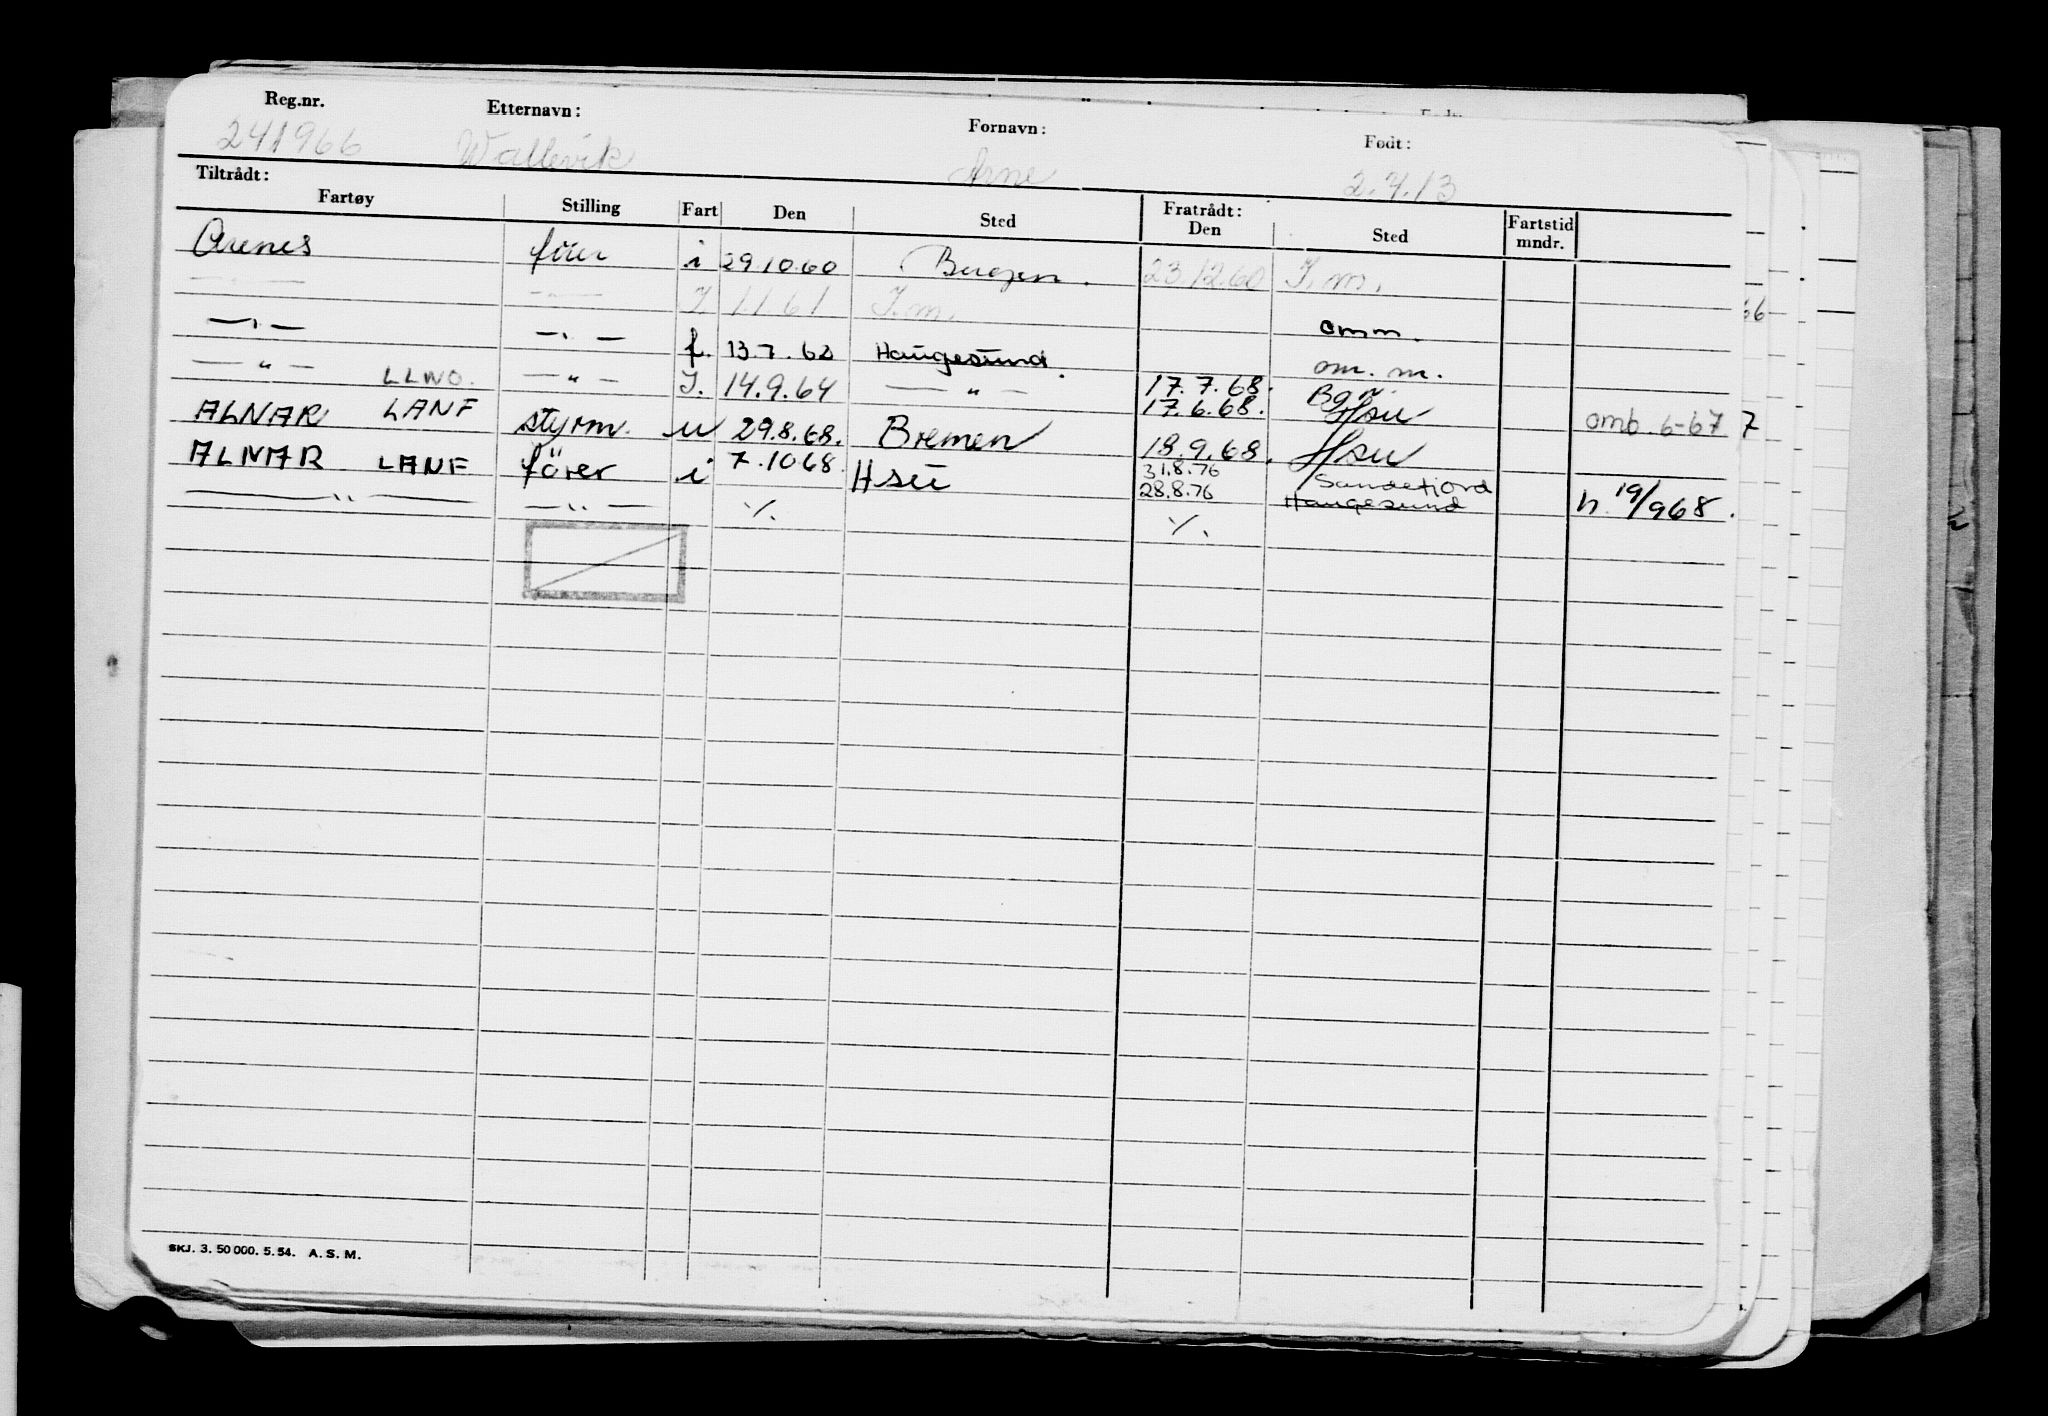 Reg.nr. Etternavn: Fornavn: Født:
241966 Wallevik Arne 2.7.13
Tiltrådt: Fratrådt:
Fartøy Stilling Fart Den Sted Den Sted Fartstid mndr.
Arenes fører i 29.10.60 Bergen. 23.12.60 I.m.
—"— —"— I 1.1.61 I.m. omm.
—"— —"— f. 13.7.62 Haugesund. om.m.
—"— LLWO. —"— I. 14.9.64 —"— 17.7.68. Bgn.
17.6.68. Hsu
ALNAR LANF styrm. u 29.8.68. Bremen 18.9.68. Hsu omb. 6-67
ALNAR LANF förer i 7.1068. Hsu 31.8.76 Sandefjord
—"— —"— ٪. 28.8.76 Haugesund n. 19/968.
٪.
66
7
SKJ. 3. 50 000. 5. 54. A. S. M.